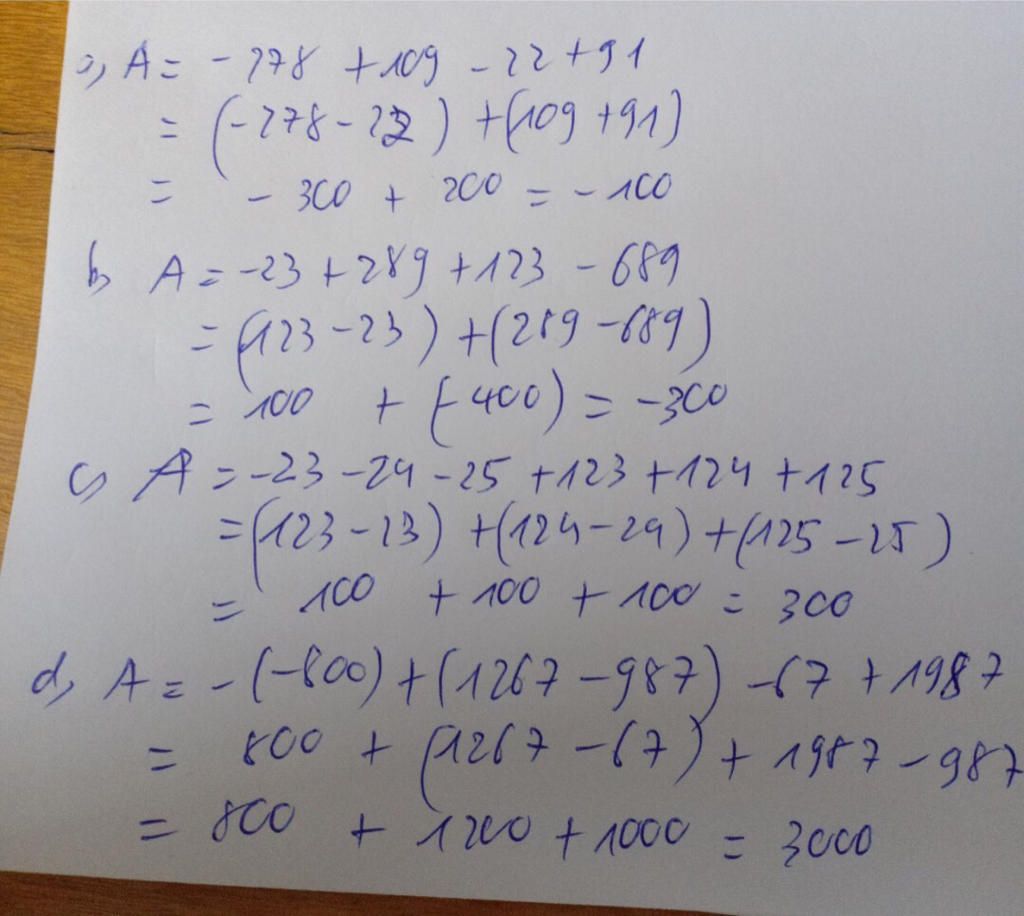 a, A = - 278 + 109 - 22 + 91
= (-278 - 22) + (109 + 91)
= - 300 + 200 = - 100
b, A = -23 + 289 + 123 - 689
= (123 - 23) + (289 - 689)
= 100 + (-400) = -300
c, A = -23 - 24 - 25 + 123 + 124 + 125
= (123 - 23) + (124 - 24) + (125 - 25)
= 100 + 100 + 100 = 300
d, A = - (-800) + (1267 - 987) - 67 + 1987
= 800 + (1267 - 67) + 1987 - 987
= 800 + 1200 + 1000 = 3000